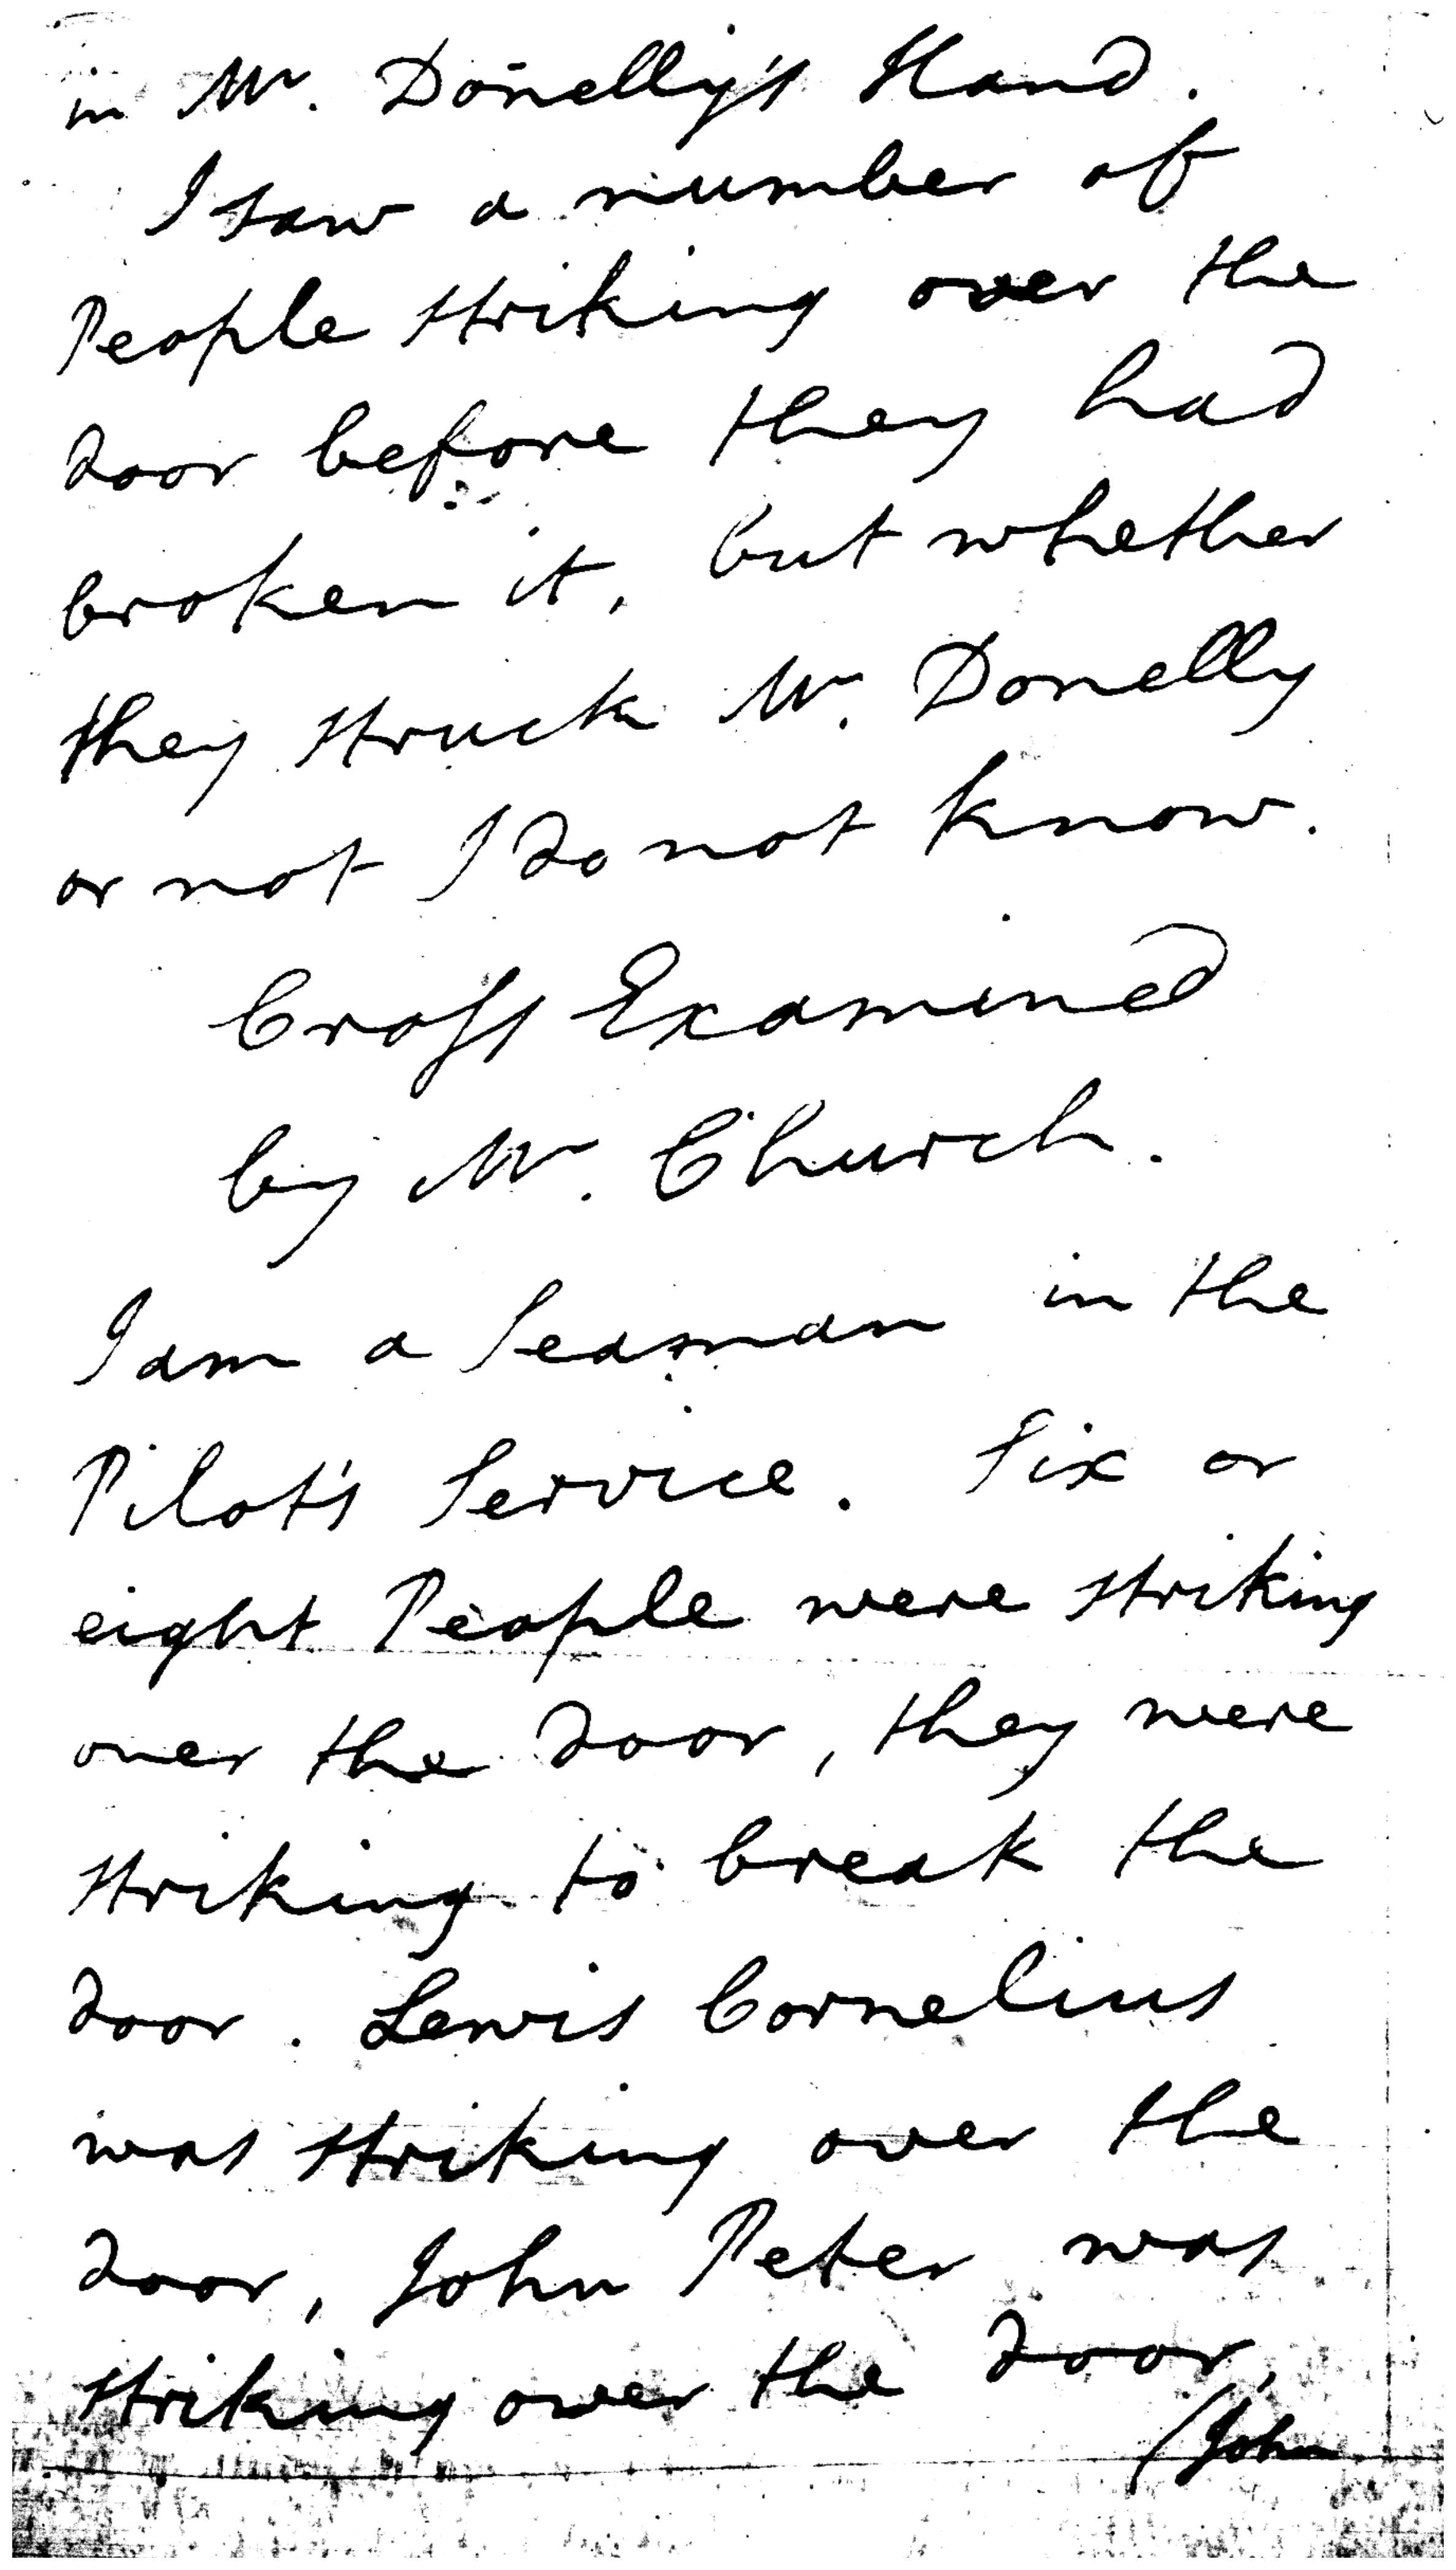 in Mr. Donelly's Hand.
I saw a number of
People striking over the
door before they had
broken it, but whether
they struck Mr. Donelly
or not I do not know.
Cross Examined
by Mr. Church.
I am a Seaman in the
Pilot's Service. Six or
eight People were striking
over the door, they were
striking to break the
door. Lewis Cornelius
was striking over the
door, John Peter was
striking over the door,
/John